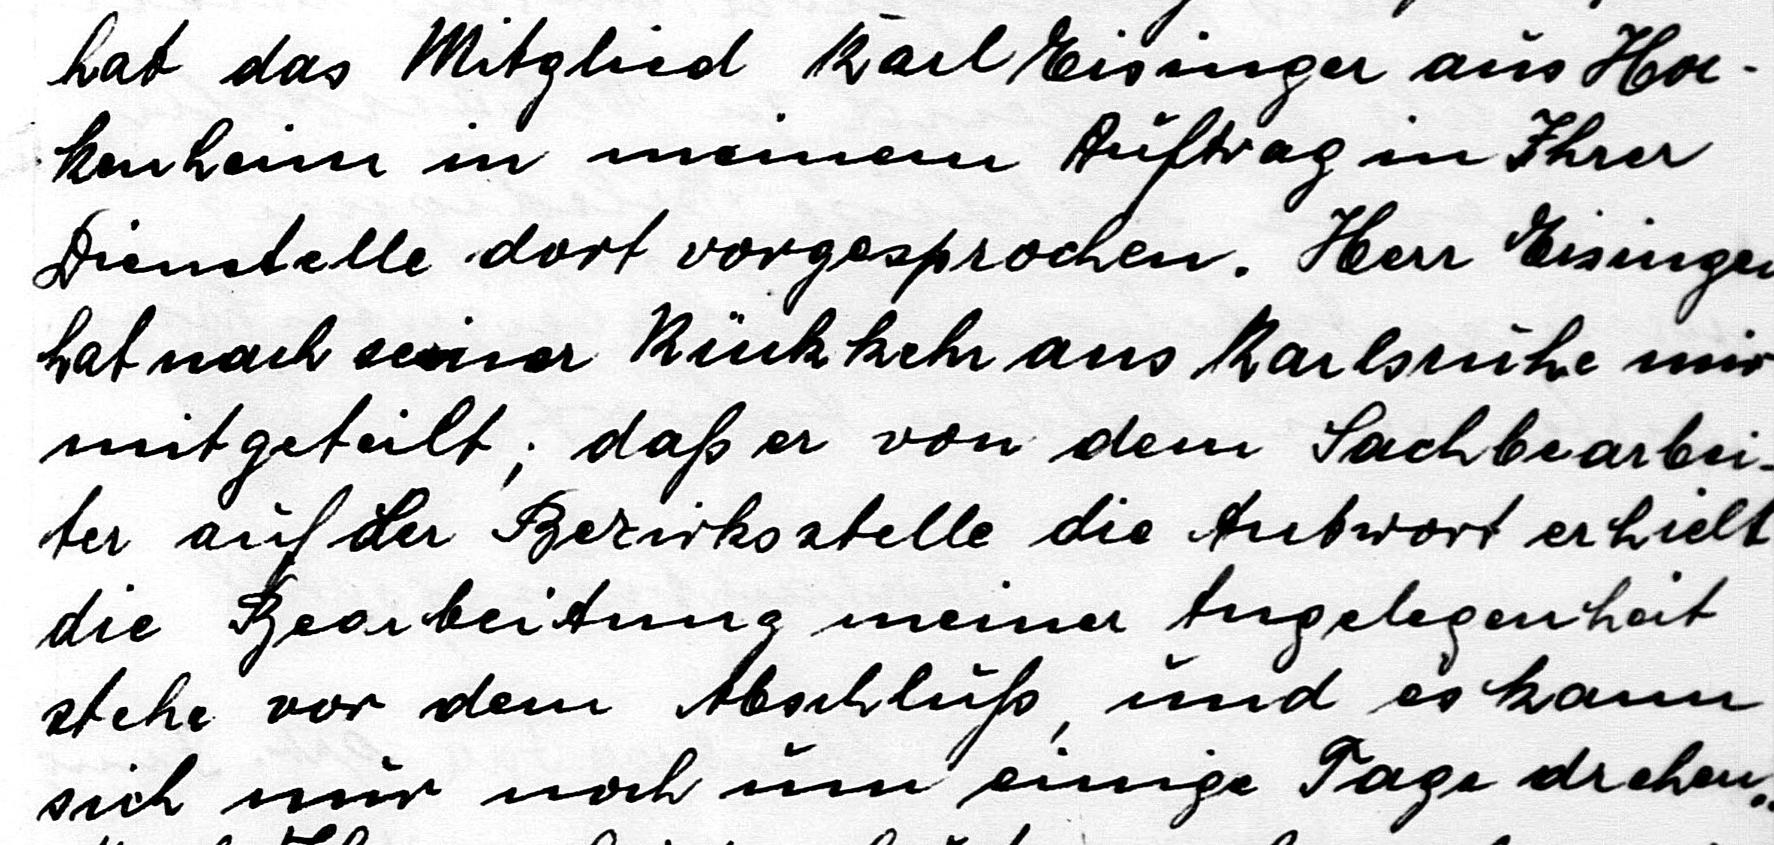 hat das Mitglied Karl Eisinger aus Hoc-
kenheim in meinem Auftrag in Ihrer
Dienstelle dort vorgesprochen. Herr Eisinger
hat nach seiner Rückkehr aus Karlsruhe mir
mitgeteilt, daß er von dem Sachbearbei-
ter auf der Bezirksstelle die Antwort erhielt
die Bearbeitung meiner Angelegenheit
stehe vor dem Abschluß, und es kann
sich nur noch um einige Tage drehen.